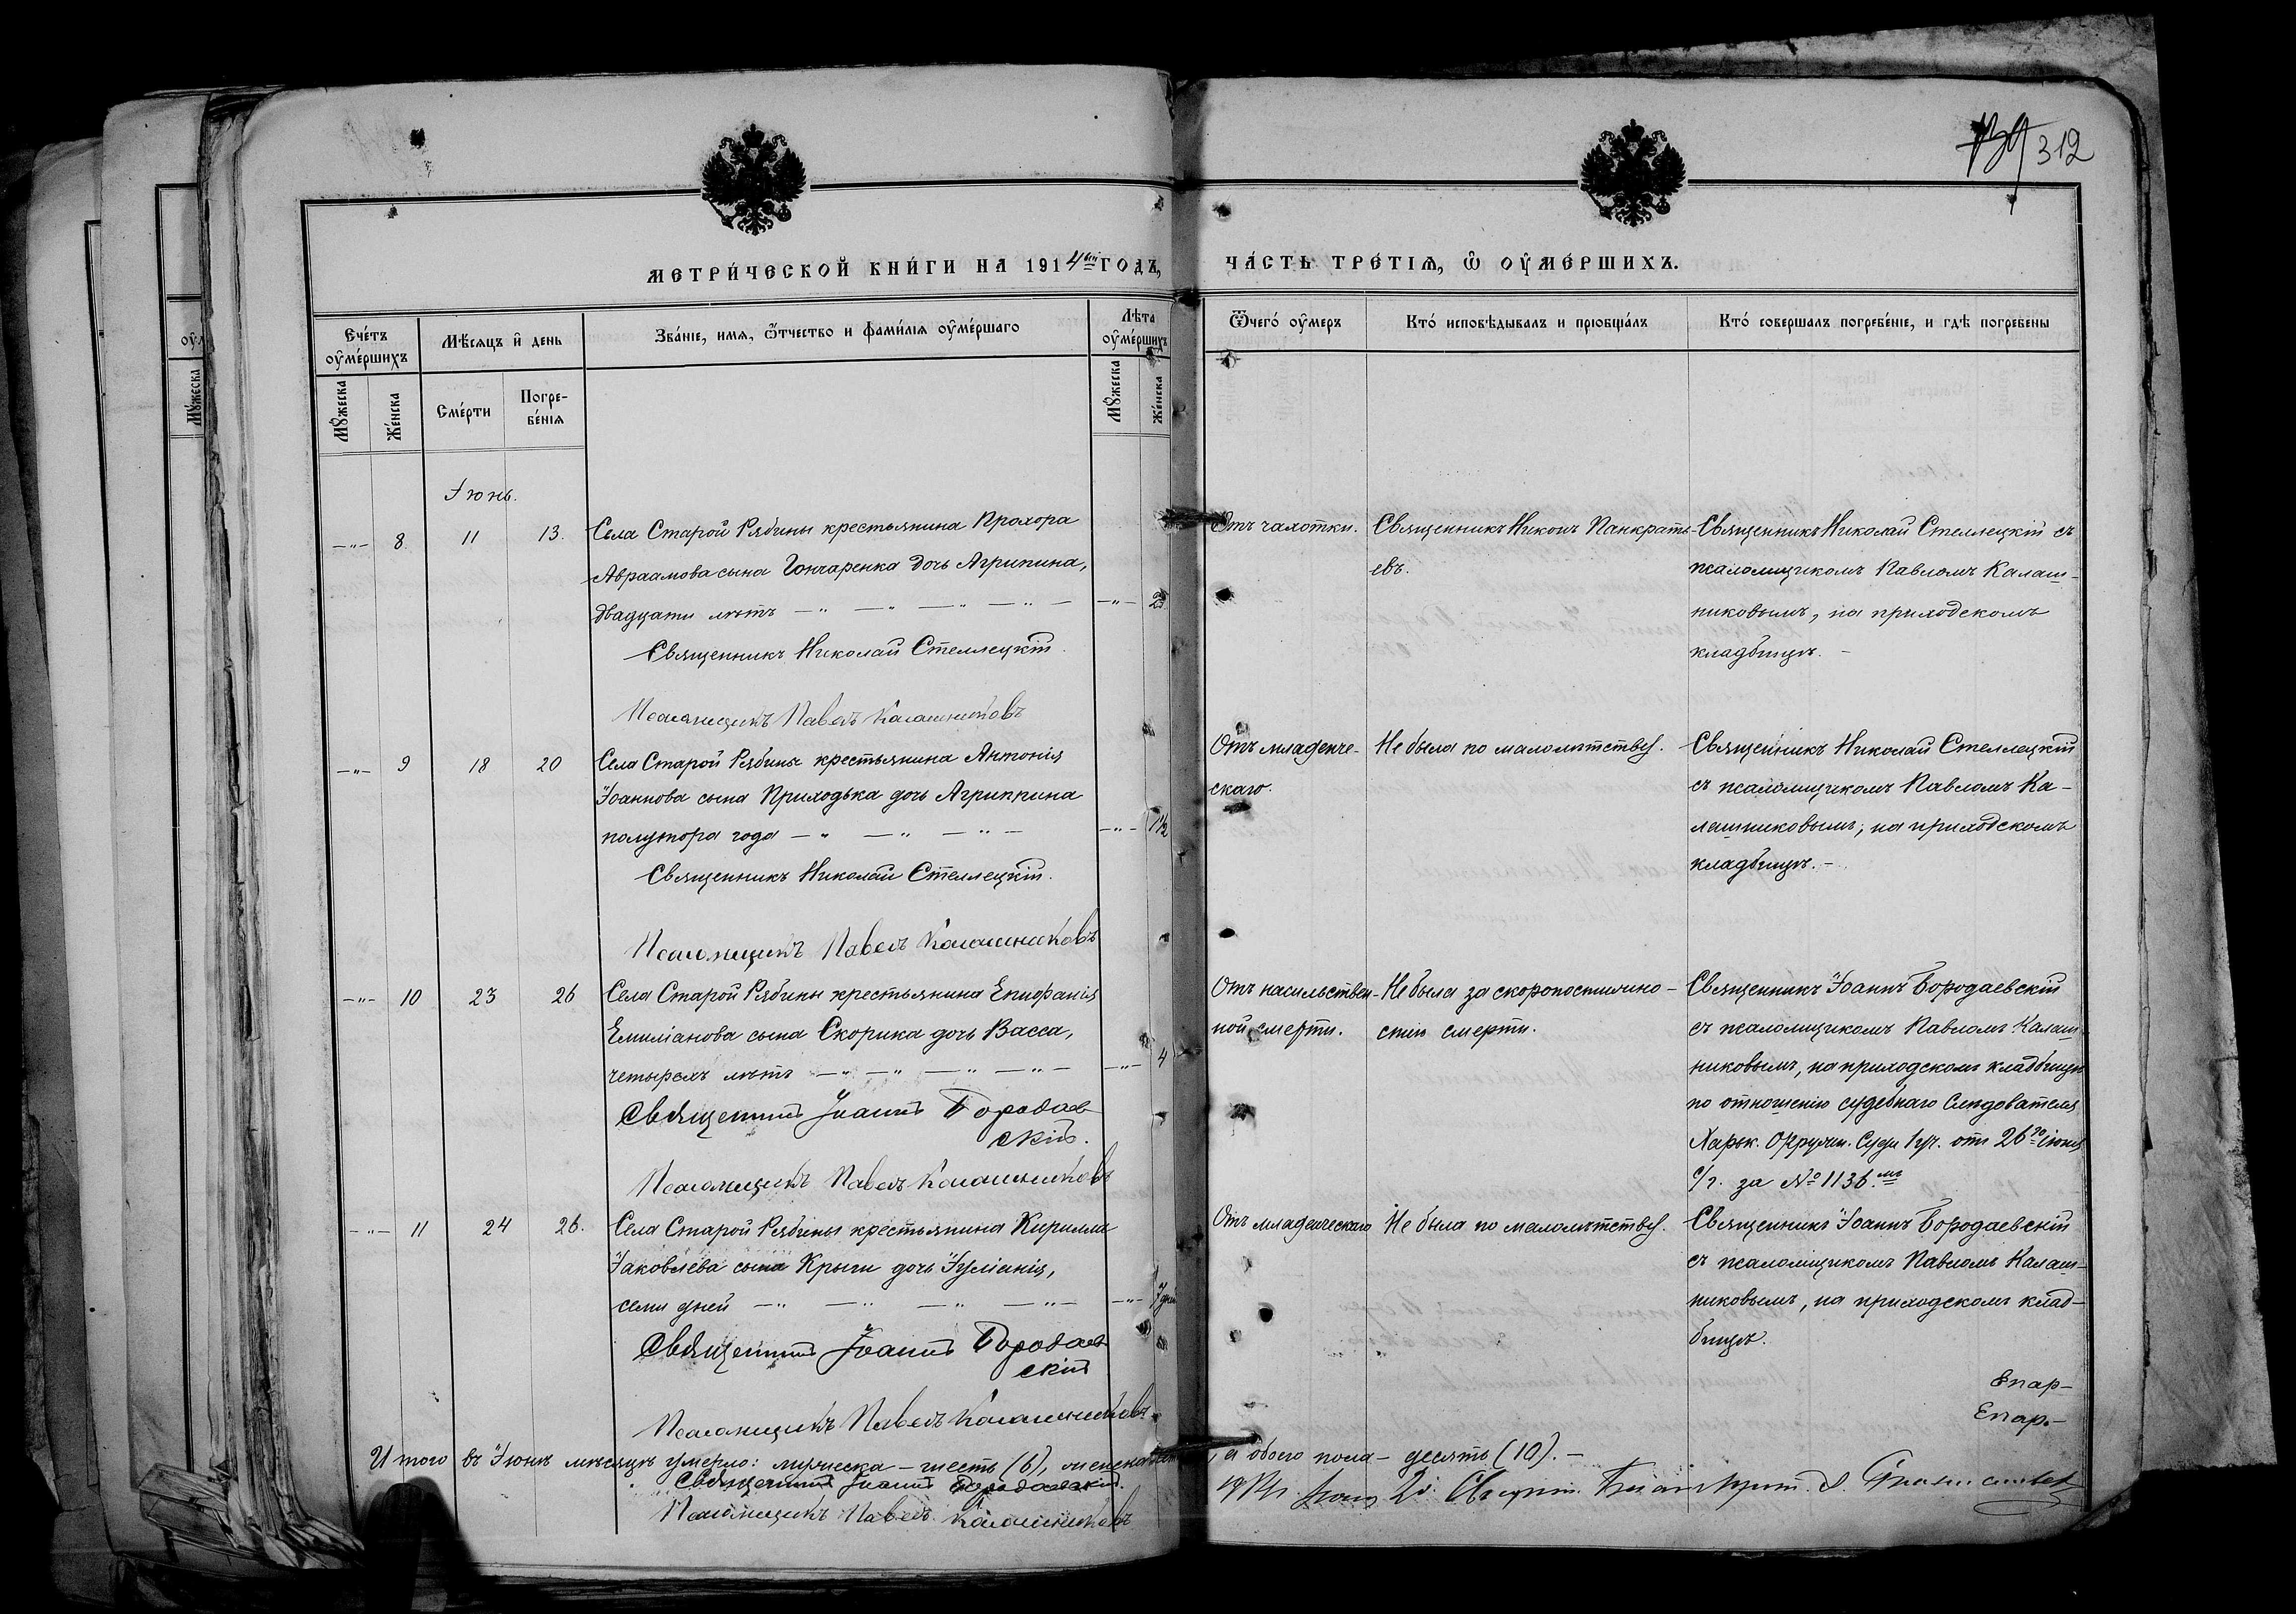 312
МЕТРИ́ЧЕСКОЙ КНИ́ГИ НА 1914ый ГОДЪ,
ЧА́СТЬ ТРЕ́ТІѦ, Ѡ ОУ҆МЕ́РШИХЪ.
Сче́тъ оу҆ме́ршихъ
Мѣ́сяцъ и҆ день
Зва́ніе, имя, ѻтчество и фами́лія оу҆ме́ршаго
Лѣта оу҆ме́ршихъ
Ѿчего́ оу҆меръ
Кто́ исповѣ́дывалъ и прїобща́лъ
Кто́ совершалъ погребе́ніе, и гдѣ̀ погребены
Мꙋжеска
Же́нска
Сме́рти
Погре-
бе́нія
Мꙋжеска
Же́нска
Іюнь.
—"— 8. 11 13. Села Старой Рябины крестьянина Прохора
Авраамова сына Гончаренка дочь Агрипина,
двадцати лѣтъ —"—"—"—"— —"— 20
Священникъ Николай Стеллецкій.
Псаломщикъ Павелъ Калашниковъ
Отъ чахотки.
Священникъ Никонъ Панкрать-
евъ.
Священникъ Николай Стеллецкій съ
псаломщикомъ Павломъ Калаш-
никовымъ, на приходскомъ
кладбищѣ. —
—"— 9 18 20 Села Старой Рябины крестьянина Антонія
Іоаннова сына Приходька дочь Агриппина
полутора года —"—"—"— —"— 1½
Священникъ Николай Стеллецкій.
Псаломщикъ Павелъ Калашниковъ
Отъ младенче-
скаго.
Не была по малолѣтству.
Священникъ Николай Стеллецкій
съ псаломщикомъ Павломъ Ка-
лашниковымъ, на приходскомъ
кладбищѣ. —
—"— 10 23 26 Села Старой Рябины крестьянина Епифанія
Емиліанова сына Скорика дочь Васса,
четырехъ лѣтъ —"—"—"—"— —"— 4
Священникъ Іоаннъ Бородаев-
скій.
Псаломщикъ Павелъ Калашниковъ
Отъ насильствен-
ной смерти.
Не была за скоропостижно-
стію смерти.
Священникъ Іоаннъ Бородаевскій
съ псаломщикомъ Павломъ Калаш-
никовымъ, на приходскомъ кладбищѣ
по отношенію судебнаго Слѣдователя
Харьк. Окружн. Суда 1 уч. отъ 26го іюня
с/г. за № 1136.мъ
—"— 11 24 26. Села Старой Рябины крестьянина Кирилла
Іаковлева сына Крыги дочь Іуліанія,
семи дней —"—"—"—"— —"— 7 дней
Священникъ Іоаннъ Бородаев-
скій
Псаломщикъ Павелъ Калашниковъ
Отъ младенческаго
Не была по малолѣтству.
Священникъ Іоаннъ Бородаевскій
съ псаломщикомъ Павломъ Калаш-
никовымъ, на приходскомъ клад-
бищѣ.
Епар-
Епар.-
Итого въ Іюнѣ мѣсяцѣ умерло: мужеска – шесть (6), женска
, а обоего пола – десять (10). –
Священникъ Іоаннъ Бородаевскій.
Псаломщикъ Павелъ Калашниковъ